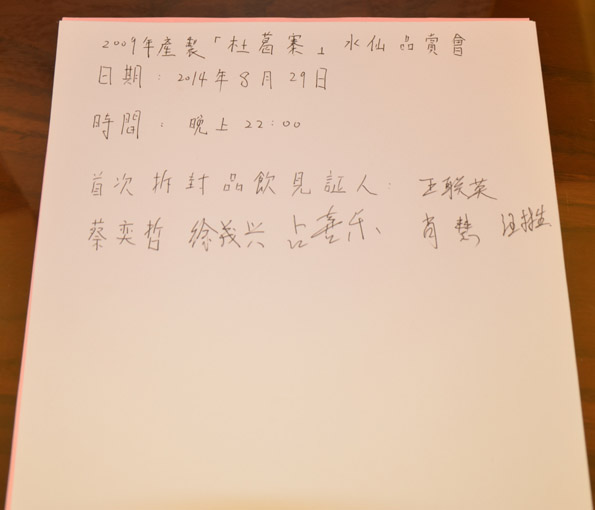 2009年產製「杜葛寨」水仙品賞會
日期：2014年8月29日
時間：晚上22:00
首次拆封品飲見証人：王联英
蔡奕哲 徐義兴 占喜乐 肖慧 汪